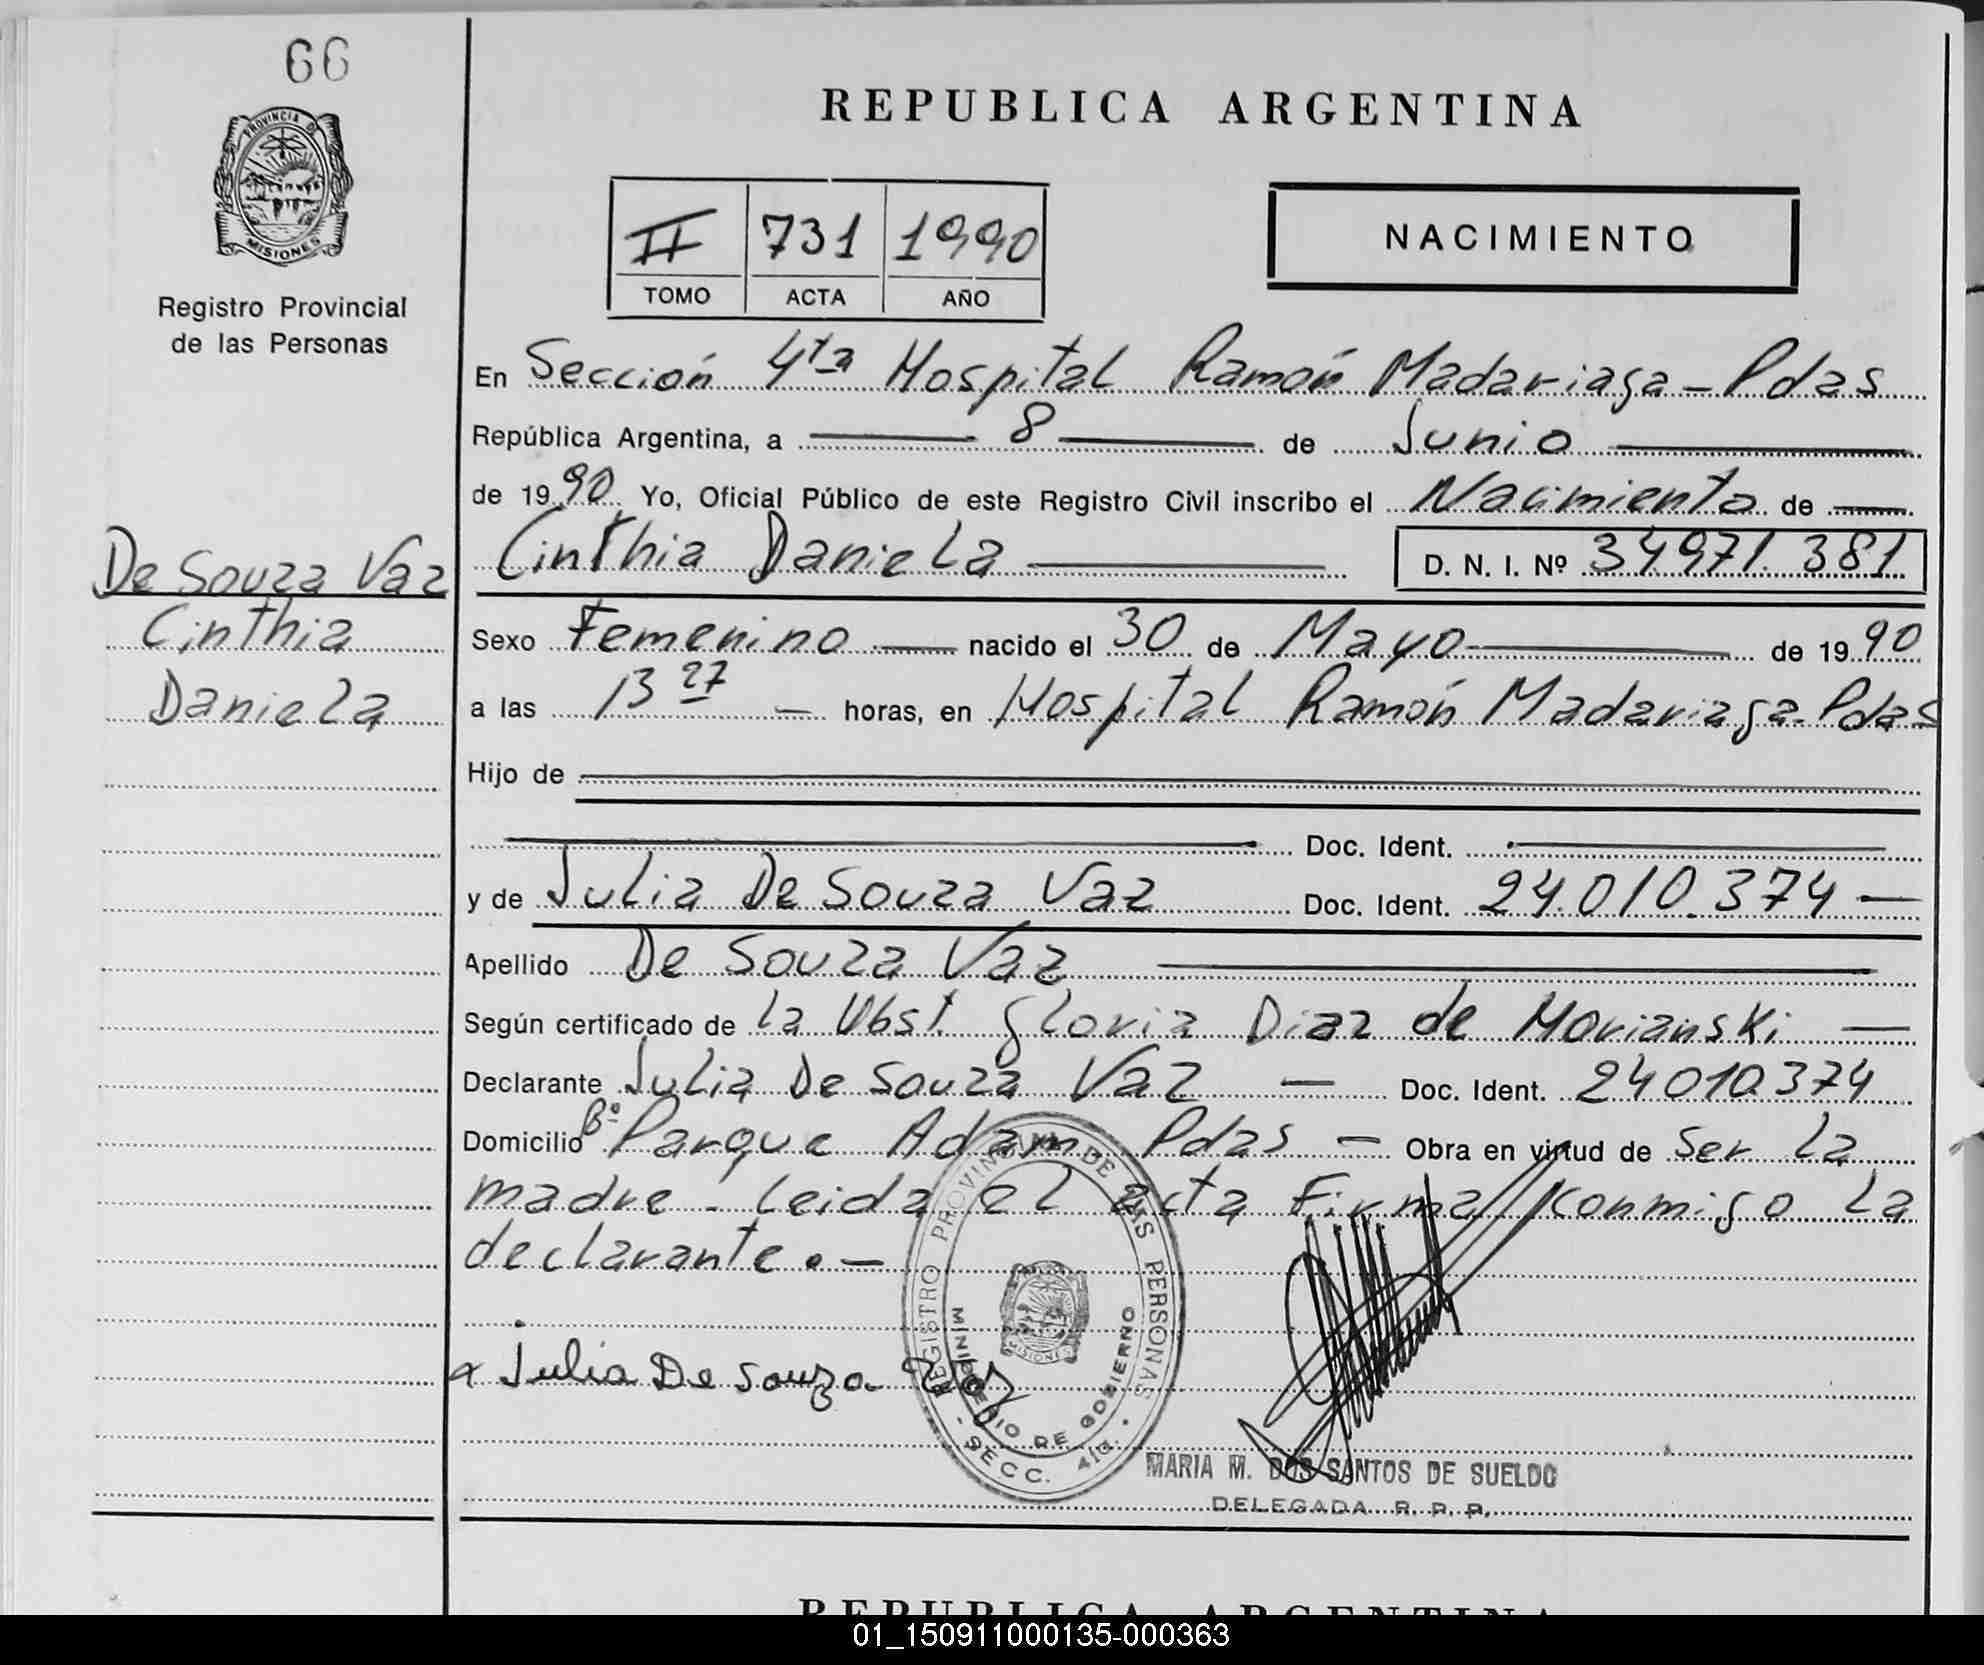 66
PROVINCIA DE
MISIONES
Registro Provincial
de las Personas
REPUBLICA ARGENTINA
II 731 1990
TOMO ACTA AÑO
NACIMIENTO
En Sección 4ta Hospital Ramón Madariaga - Pdas
República Argentina, a 8 de Junio
de 1990 Yo, Oficial Público de este Registro Civil inscribo el Nacimiento de
De Souza Vaz Cinthia Daniela D. N. I. Nº 34971.381
Cinthia Sexo Femenino nacido el 30 de Mayo de 1990
Daniela a las 13 27 horas, en Hospital Ramón Madariaga - Pdas
Hijo de
Doc. Ident.
y de Julia De Souza Vaz Doc. Ident. 24.010.374 —
Apellido De Souza Vaz
Según certificado de la Obst. Gloria Diaz de Morianski —
Declarante Julia De Souza Vaz — Doc. Ident. 24010374
Domicilio Bº Parque Adam Pdas — Obra en virtud de Ser la
madre - Leida el acta Firma conmigo la
declarante. —
Julia De Souza Vaz
REGISTRO PROVINCIAL DE LAS PERSONAS
MINISTERIO DE GOBIERNO
- SECC. 4ta. -
MISIONES
MARIA M. DOS SANTOS DE SUELDO
DELEGADA R. P. P.
REPUBLICA ARGENTINA
01_150911000135-000363